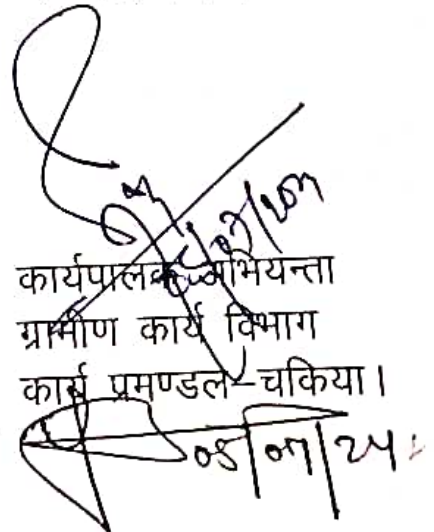 कार्यपालक अभियन्ता
ग्रामीण कार्य विभाग
कार्य प्रमण्डल-चकिया।
05/07/24